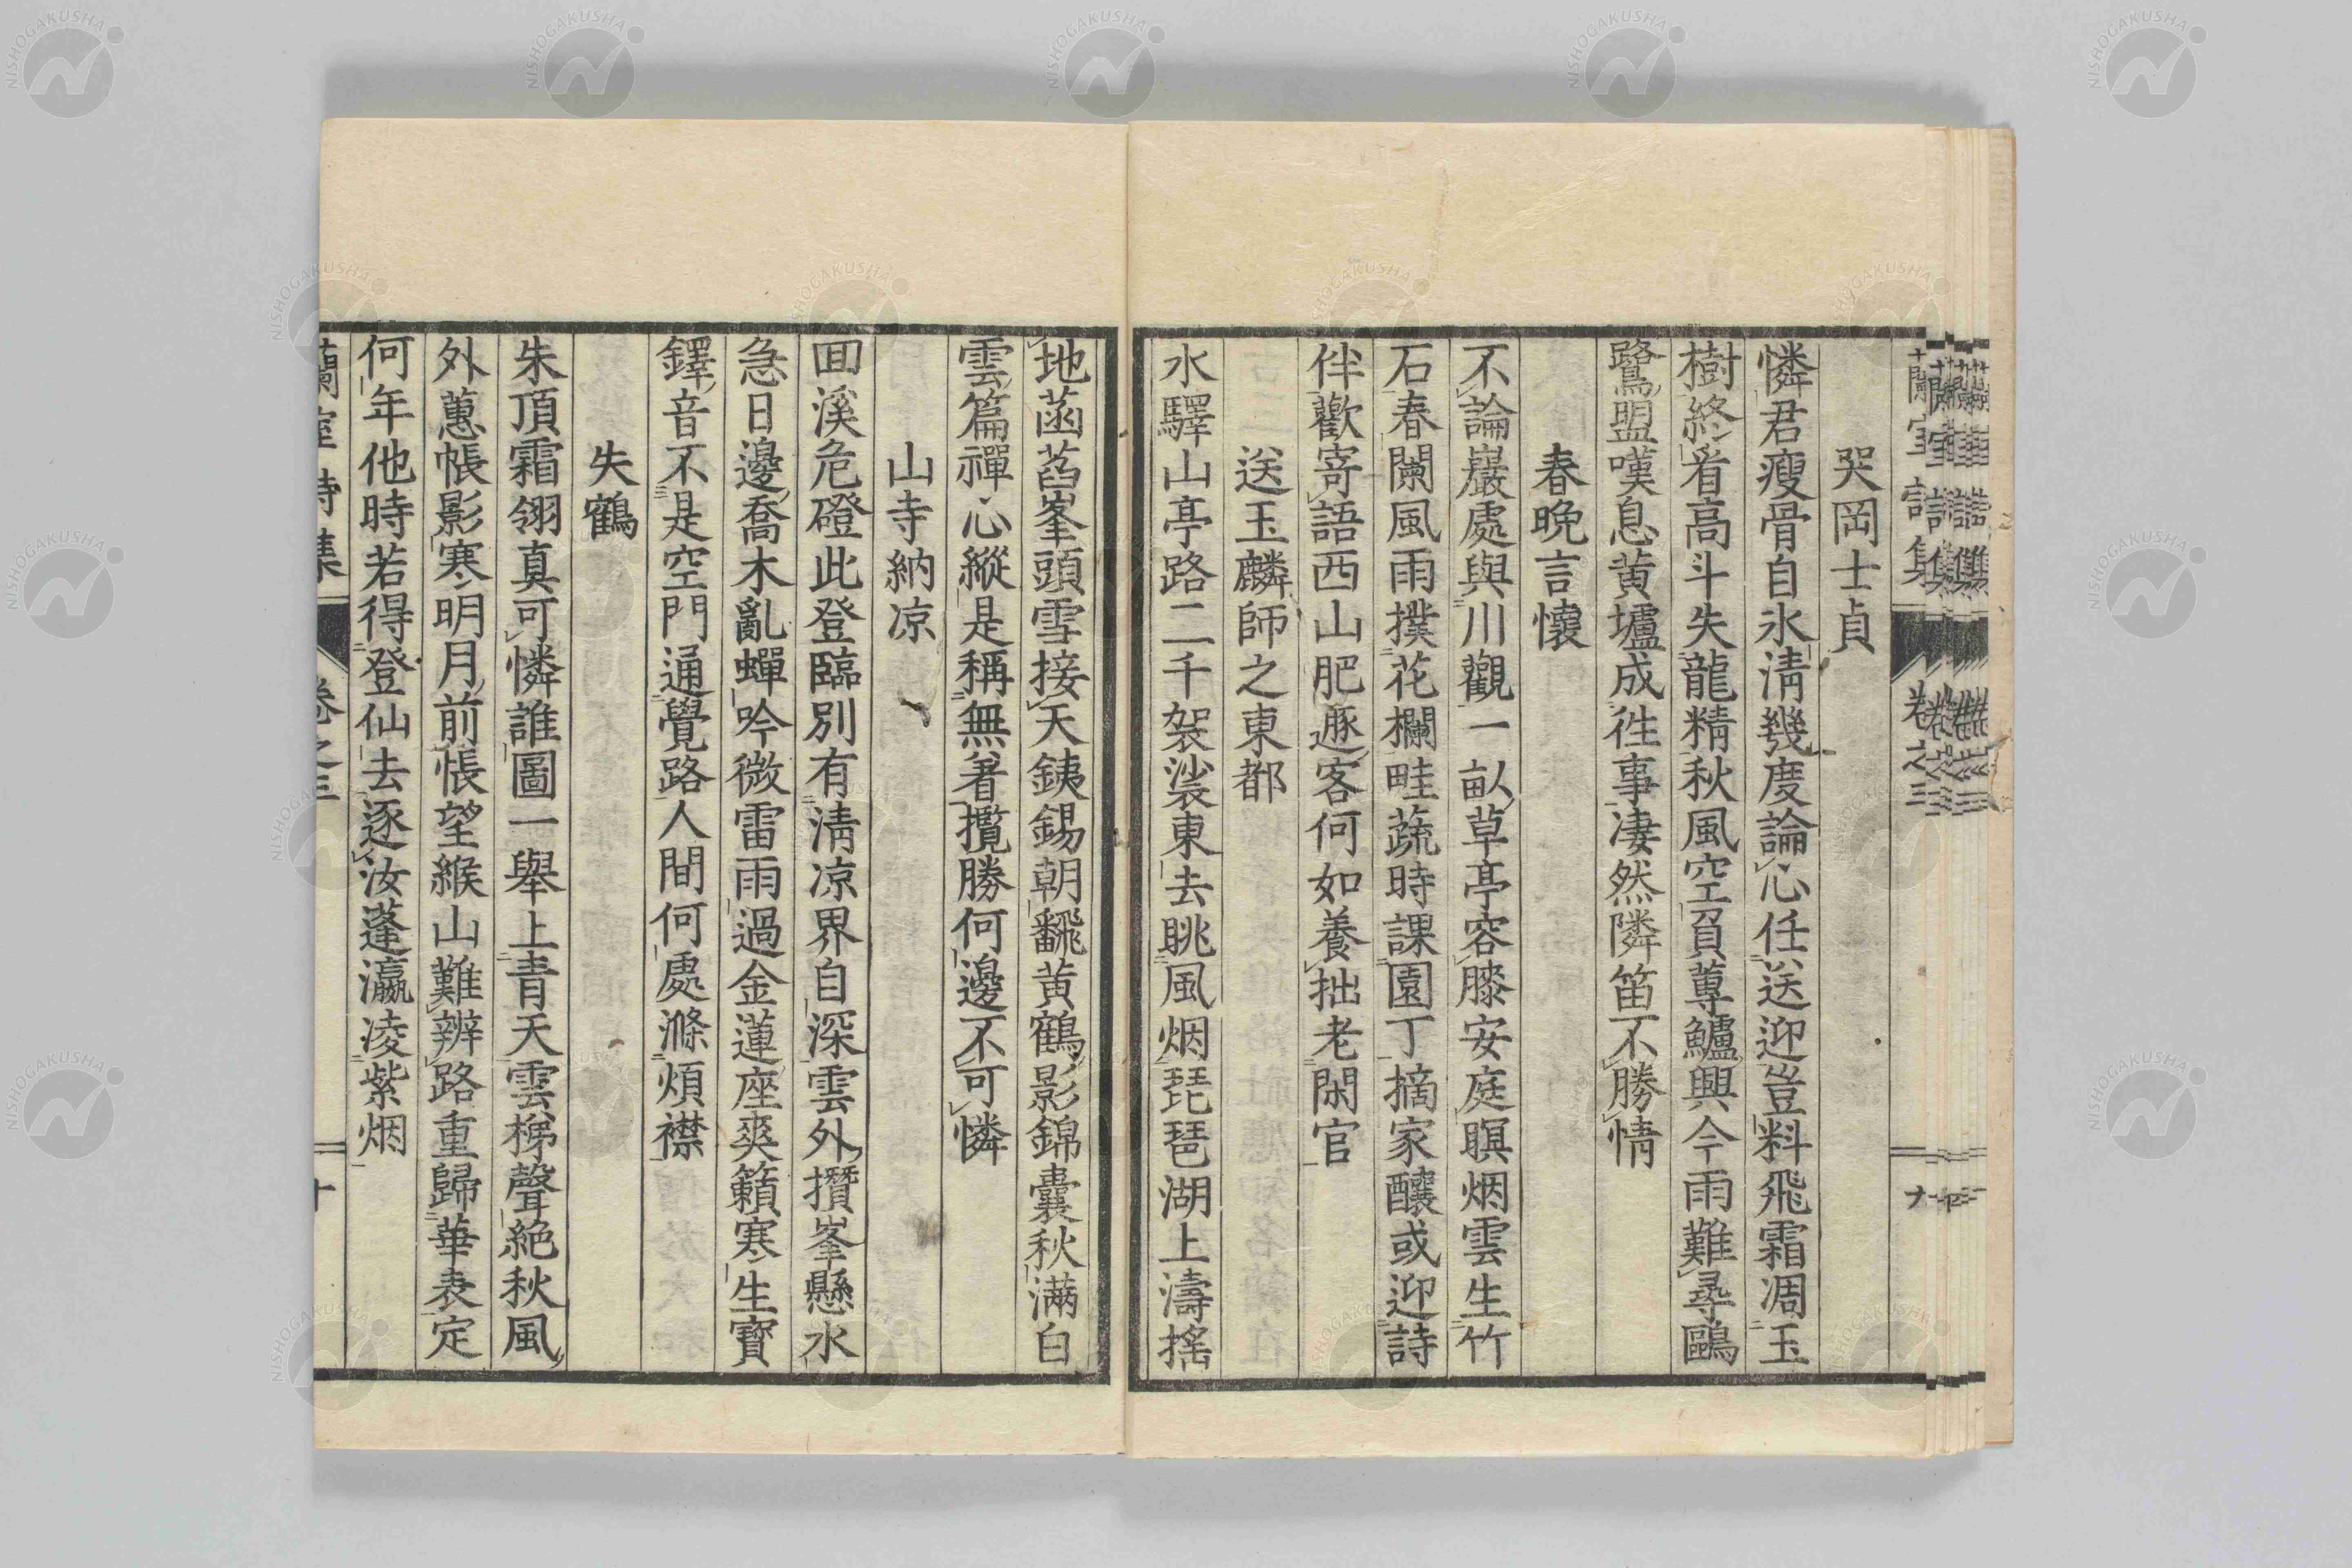 哭岡士貞
憐君瘦骨自氷淸幾度論心任送迎豈料飛霜凋玉
樹終看高斗失龍精秋風空負蓴鱸興今雨難尋鷗
鷺盟嘆息黃壚成徃事凄然隣笛不勝情
春晚言懷
不論巖處與川觀一畝草亭容膝安庭暝烟雲生竹
石春闌風雨撲花欄畦蔬時課園丁摘家釀或迎詩
伴歡寄語西山肥遯客何如養拙老閑官
送玉麟師之東都
水驛山亭路二千袈裟東去眺風烟琵琶湖上濤搖
地菡萏峯頭雪接天銕錫朝飜黃鶴影錦囊秋滿白
雲篇禪心縱是稱無著攬勝何邊不可憐
山寺納凉
回溪危磴此登臨別有淸凉界自深雲外攢峯懸水
急日邊喬木亂蟬吟微雷雨過金蓮座爽籟寒生寶
鐸音不是空門通覺路人間何處滌煩襟
失鶴
朱頂霜翎真可憐誰圖一舉上青天雲梯聲絕秋風
外蕙帳影寒明月前悵望緱山難辨路重歸華表定
何年他時若得登仙去逐汝蓬瀛凌紫烟
蘭室詩集 卷之三 十
蘭室詩集 卷之三 九
NISHOGAKUSHA